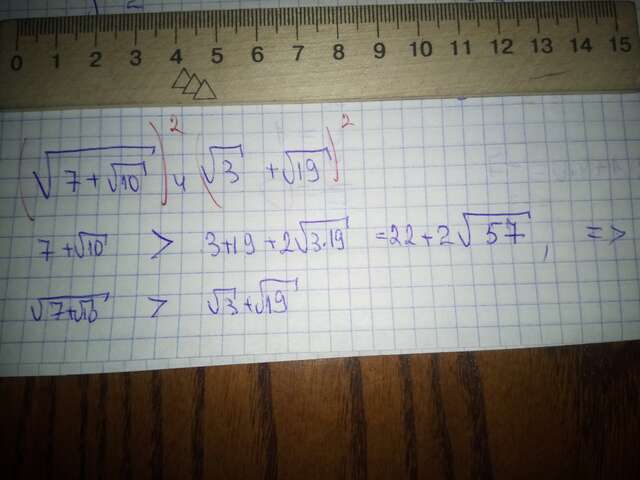 0 1 2 3 4 5 6 7 8 9 10 11 12 13 14 15
(√(7+√10))² и (√3 + √19)²
7+√10 > 3+19+2√(3·19) = 22+2√57, =>
√(7+√10) > √3+√19